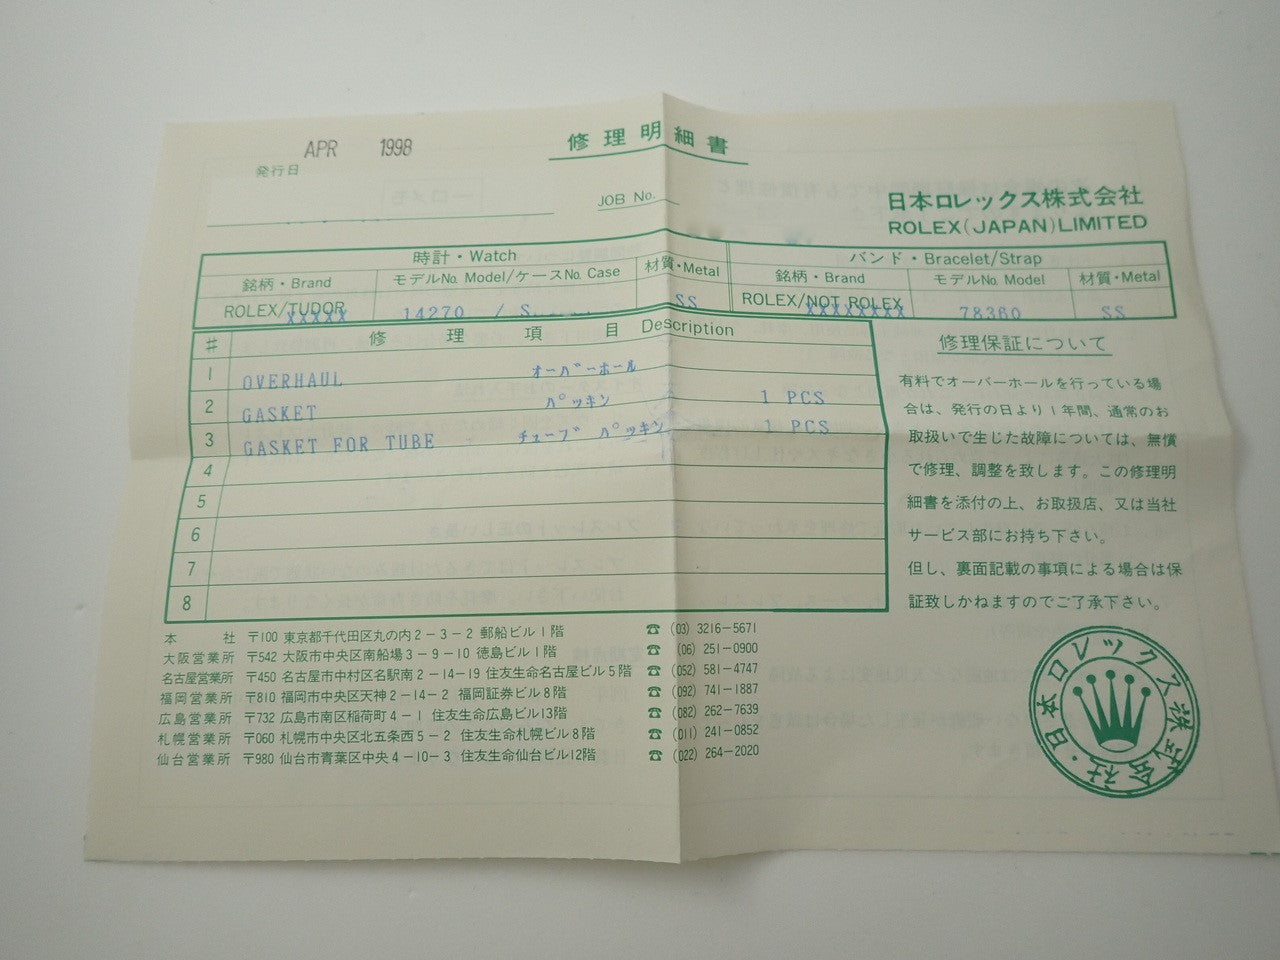 APR 1998
発行日
修理明細書
JOB No.
日本ロレックス株式会社
ROLEX(JAPAN)LIMITED
時計・Watch
バンド・Bracelet/Strap
銘柄・Brand モデルNo. Model/ケースNo. Case 材質・Metal 銘柄・Brand モデルNo. Model 材質・Metal
ROLEX/TUDOR XXXXX 14270 / S SS ROLEX/NOT ROLEX XXXXXXXX 78360 SS
# 修理項目 Description
1 OVERHAUL オーバーホール
2 GASKET パッキン 1 PCS
3 GASKET FOR TUBE チューブ パッキン 1 PCS
4
5
6
7
8
修理保証について
有料でオーバーホールを行っている場
合は、発行の日より1年間、通常のお
取扱いで生じた故障については、無償
で修理、調整を致します。この修理明
細書を添付の上、お取扱店、又は当社
サービス部にお持ち下さい。
但し、裏面記載の事項による場合は保
証致しかねますのでご了承下さい。
本社 〒100 東京都千代田区丸の内2-3-2 郵船ビル1階 ☎ (03) 3216-5671
大阪営業所 〒542 大阪市中央区南船場3-9-10 徳島ビル1階 ☎ (06) 251-0900
名古屋営業所 〒450 名古屋市中村区名駅南2-14-19 住友生命名古屋ビル5階 ☎ (052) 581-4747
福岡営業所 〒810 福岡市中央区天神2-14-2 福岡証券ビル8階 ☎ (092) 741-1887
広島営業所 〒732 広島市南区稲荷町4-1 住友生命広島ビル13階 ☎ (082) 262-7639
札幌営業所 〒060 札幌市中央区北五条西5-2 住友生命札幌ビル8階 ☎ (011) 241-0852
仙台営業所 〒980 仙台市青葉区中央4-10-3 住友生命仙台ビル12階 ☎ (022) 264-2020
・日本ロレックス株式会社